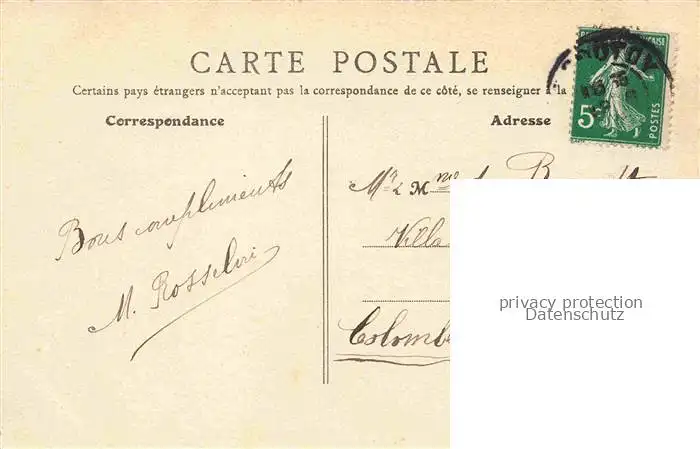 CARTE POSTALE
Certains pays étrangers n'acceptant pas la correspondance de ce côté, se renseigner à la
Correspondance
Adresse
5
POSTES
Mr & Mme
Villa
Colomb
Bons compliments
M.
privacy protection
Datenschutz